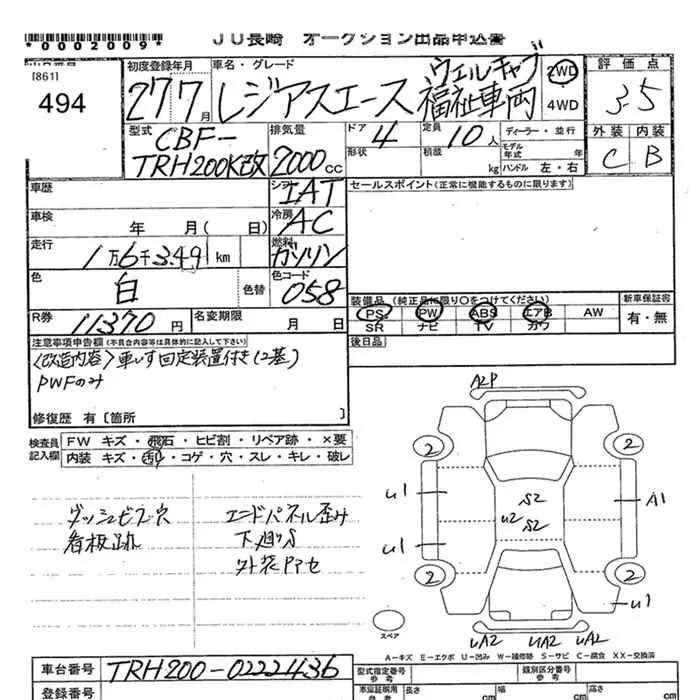 *0002009*
JU長崎 オークション出品申込書
[861]
494
初度登録年月
27 7月
車名・グレード
レジアスエース ウェルキャブ 福祉車両
2WD
・
4WD
評価点
3.5
外装 内装
C B
型式
CBF-
TRH200K改
排気量
2000cc
ドア 4
形状
定員 10人
積載 kg
ディーラー・並行
モデル年式 年
ハンドル 左・右
車歴
シフト IAT
セールスポイント(正常に機能するものに限ります)
車検 年 月( 日)
冷房 AC
走行 1万6千349 km
燃料 ガソリン
色 白 色替
色コード 058
装備品 (純正品に限り○をつけてください)
PS PW ABS エアB AW
SR ナビ TV カワ
新車保証書
有・無
R券 11370円
名変期限 月 日
後日品
注意事項申告欄(不具合内容等は具体的に記入して下さい)
<改造内容>車いす固定装置付き(2基)
PWFのみ
修復歴 有〔箇所 〕
検査員記入欄
FW キズ・飛石・ヒビ割・リペア跡・×要
内装 キズ・汚れ・コゲ・穴・スレ・キレ・破レ
ダッシュビス穴
看板跡
エンドパネル歪み
下廻りS
外装Pアセ
A2P
2 2
U1 A1
S2
U2 S2
U1
2 2
U1
スペア
UA2 UA2 UA2
A-キズ E-エクボ U-凹み W-補修跡 S-サビ C-腐食 XX-交換済
車台番号 TRH200-0222436
登録番号
型式指定番号 参考
類別区分番号 参考
長さ cm 幅 cm 高さ cm